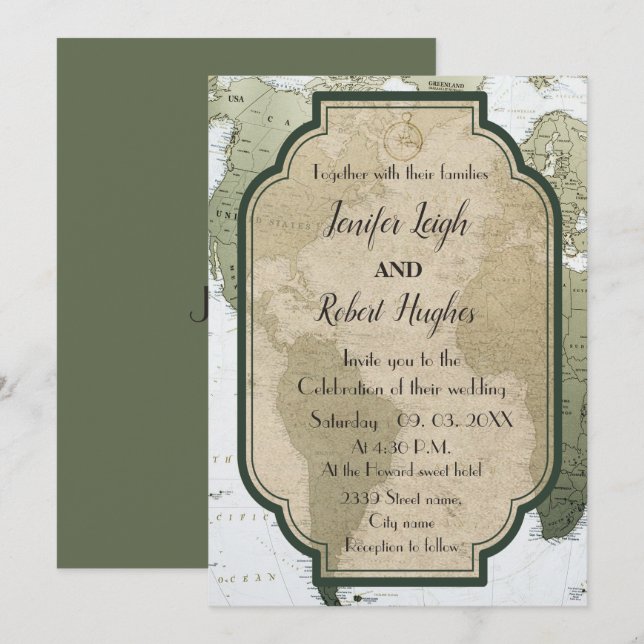 GREENLAND
USA
CA
UNITED STATES
Together with their families
Jenifer Leigh
AND
Robert Hughes
Invite you to the
Celebration of their wedding
Saturday 09. 03. 20XX
At 4:30 P.M.
At the Howard sweet hotel
2339 Street name,
City name
Reception to follow
J
PACIFIC
OCEAN